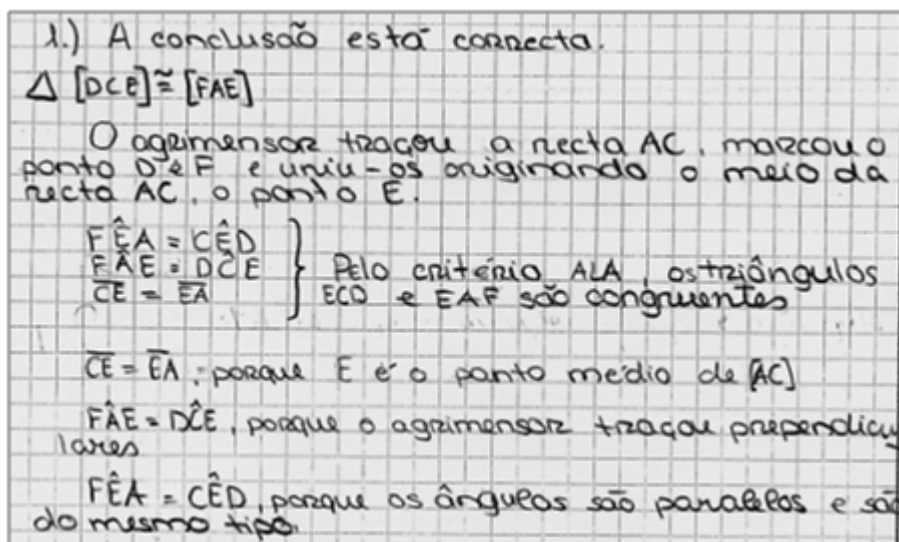 1.) A conclusão está correcta.
△ [DCE] ≅ [FAE]
O agrimensor traçou a recta AC, marcou o
ponto D e F e uniu-os originando o meio da
recta AC, o ponto E.
FÊA = CÊD
FÂE = DĈE
C̅E̅ = E̅A̅
Pelo critério ALA, os triângulos
ECD e EAF são congruentes
C̅E̅ = E̅A̅, porque E é o ponto médio de [AC]
FÂE = DĈE, porque o agrimensor traçou prependicu
lares
FÊA = CÊD, porque os ângulos são paralelos e são
do mesmo tipo.